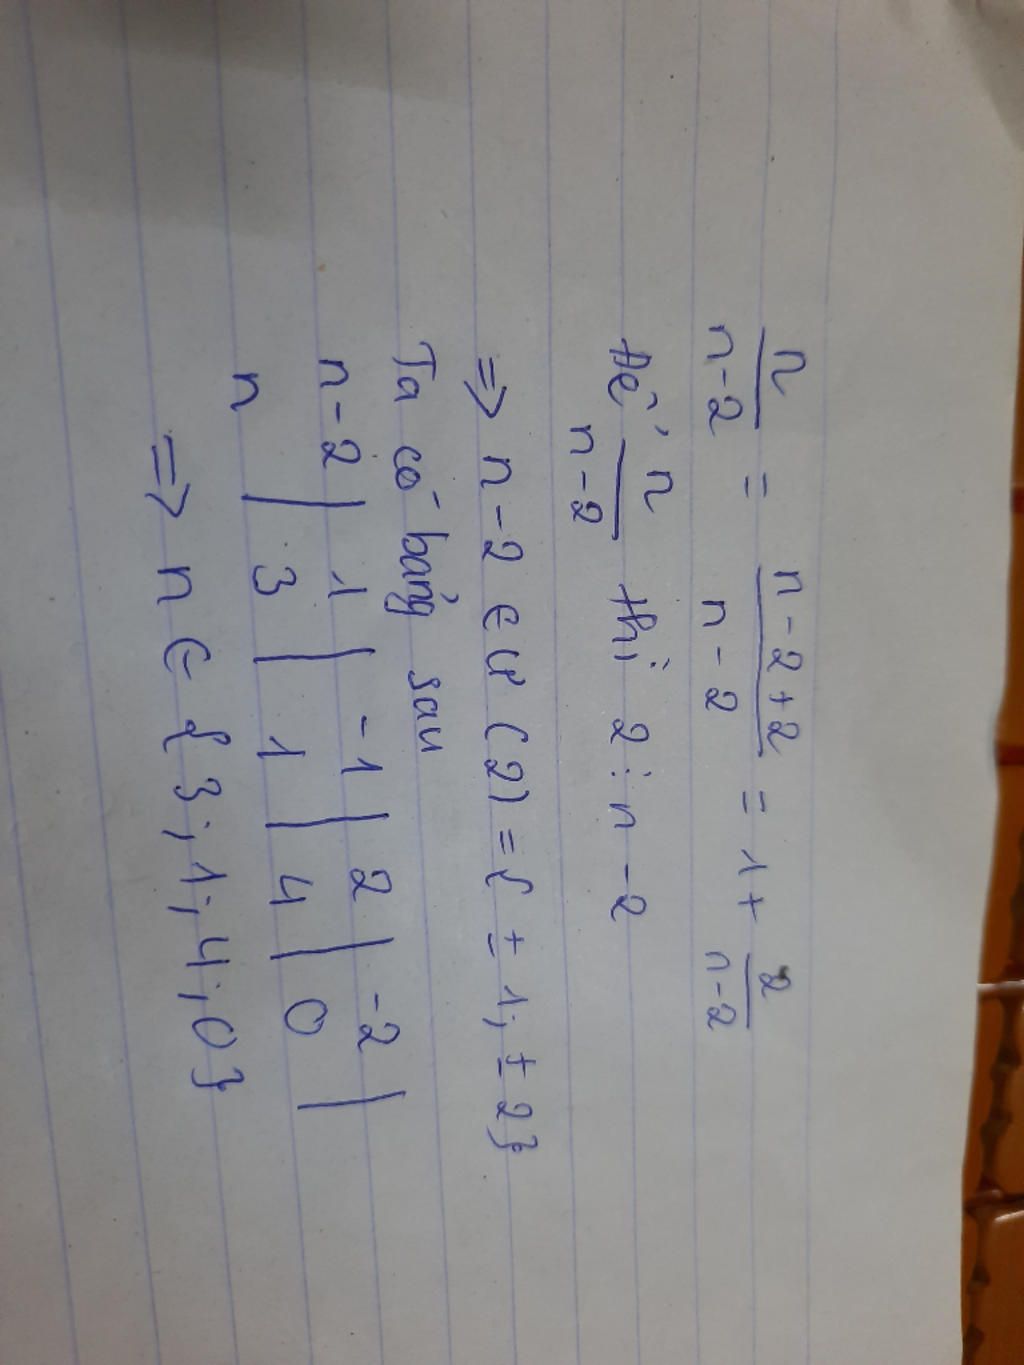 n/(n-2) = (n-2+2)/(n-2) = 1 + 2/(n-2)
Để n/(n-2) thì 2 ⋮ n-2
=> n-2 ∈ Ư (2) = { ± 1; ± 2}
Ta có bảng sau
n-2 | 1 | -1 | 2 | -2 |
n | 3 | 1 | 4 | 0 |
=> n ∈ { 3; 1; 4; 0}